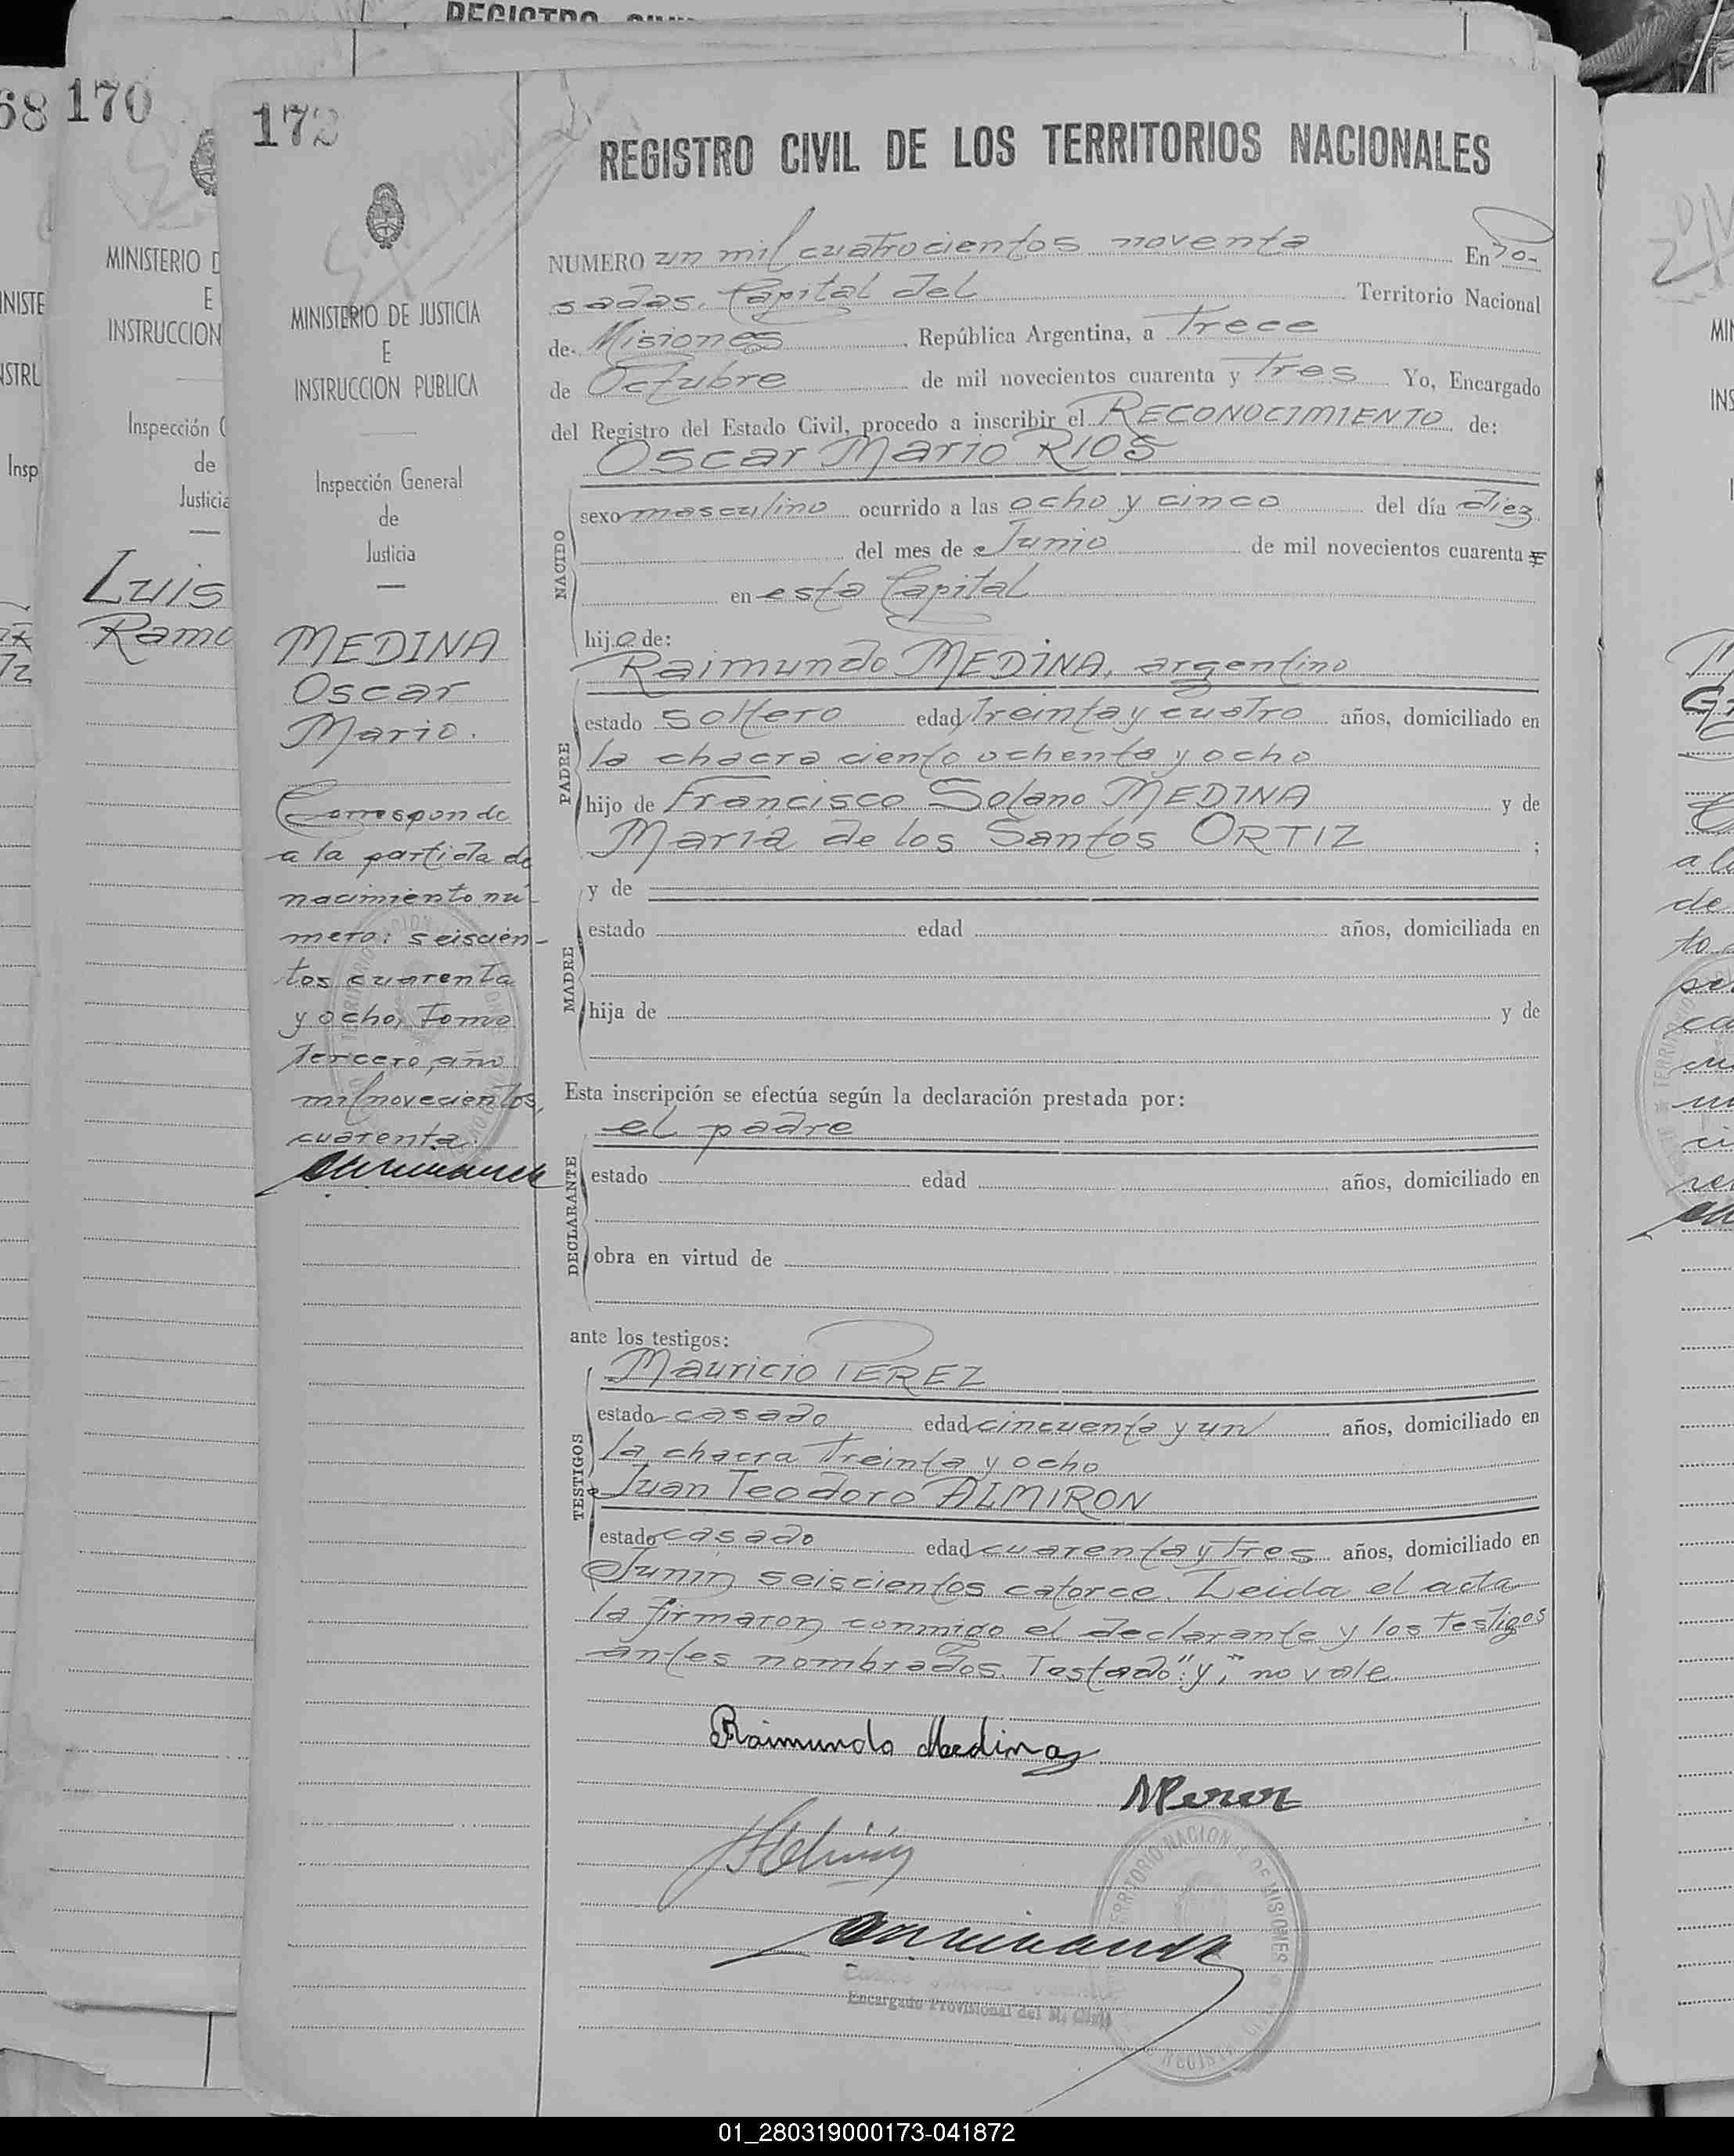 REGISTRO CIVIL
68
170
172
REGISTRO CIVIL DE LOS TERRITORIOS NACIONALES
MINISTERIO DE JUSTICIA
E
INSTRUCCION PUBLICA
Inspección General
de
Justicia
MEDINA
Oscar
Mario.
Corresponde
a la partida de
nacimiento nú-
mero: seiscien-
tos cuarenta
y ocho, Tomo
Tercero, año
mil novecientos
cuarenta.
NUMERO un mil cuatrocientos noventa En Po-
sadas, Capital del Territorio Nacional
de Misiones, República Argentina, a Trece
de Octubre de mil novecientos cuarenta y Tres Yo, Encargado
del Registro del Estado Civil, procedo a inscribir el RECONOCIMIENTO de:
Oscar Mario RIOS
NACIDO
sexo masculino ocurrido a las ocho y cinco del día diez
del mes de Junio de mil novecientos cuarenta y
en esta Capital
hijo de:
Raimundo MEDINA, argentino
PADRE
estado soltero edad treinta y cuatro años, domiciliado en
la chacra ciento ochenta y ocho
hijo de Francisco Solano MEDINA y de
Maria de los Santos ORTIZ ;
MADRE
y de
estado edad años, domiciliada en
hija de y de
Esta inscripción se efectúa según la declaración prestada por:
el padre
DECLARANTE
estado edad años, domiciliado en
obra en virtud de
ante los testigos:
Mauricio PEREZ
TESTIGOS
estado casado edad cincuenta y un años, domiciliado en
la chacra Treinta y ocho
Juan Teodoro ALMIRON
estado casado edad cuarenta y Tres años, domiciliado en
Junin seiscientos catorce. Leida el acta
la firmaron conmigo el declarante y los testigos
antes nombrados. Testado "y", no vale.
Raimundo Medina
MPerez
TERRITORIO NACIONAL DE MISIONES
Encargado Provisional del R. Civil
MINISTERIO D
E
INSTRUCCION
Inspección G
de
Justicia
Luis
Ramo
01_280319000173-041872